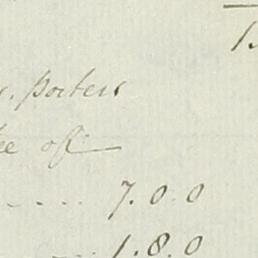 1.
s. porters
ee of
7.0.0
1.8.0